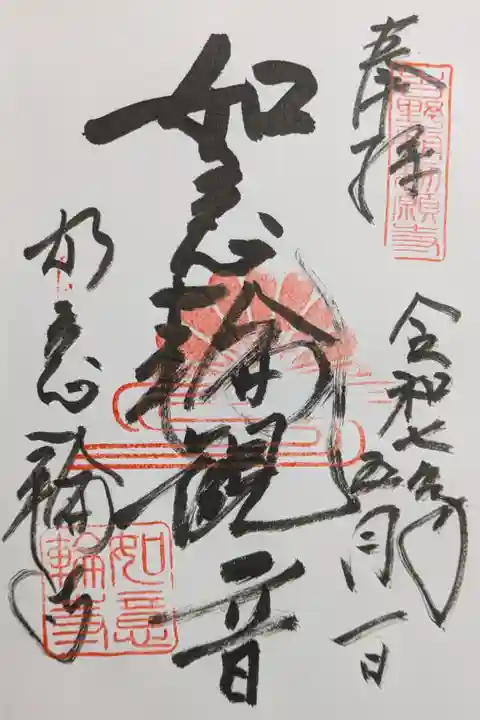 奉拝
吉野朝勅願寺
令和七年五月一日
如意輪観音
如意輪寺
如意
輪寺